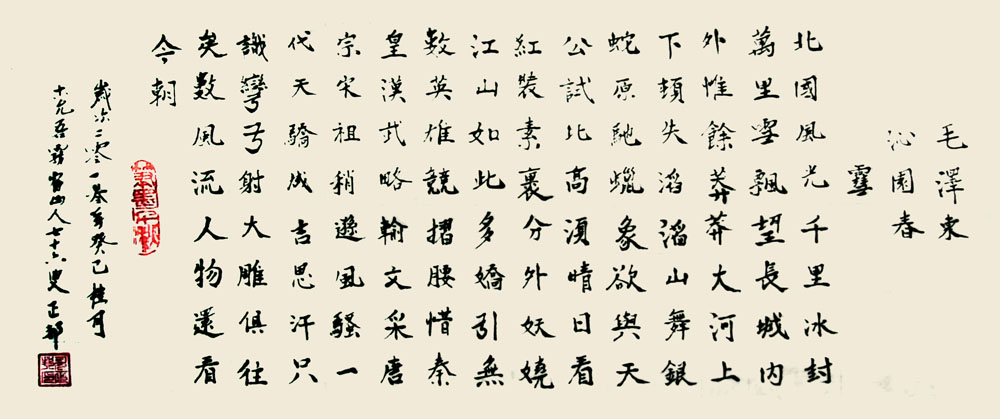 毛澤東
沁園春
雪
北國風光千里冰封
萬里雪飄望長城内
外惟餘莽莽大河上
下頓失滔滔山舞銀
蛇原馳蠟象欲與天
公試比高湏晴日看
紅裝素裹分外妖嬈
江山如此多嬌引無
數英雄競摺腰惜秦
皇漢武略輸文采唐
宗宋祖稍遜風騷一
代天驕成吉思汗只
識彎弓射大雕俱往
矣數風流人物還看
今朝
歲次二零一叁年癸巳桂月
山人七十六叟正